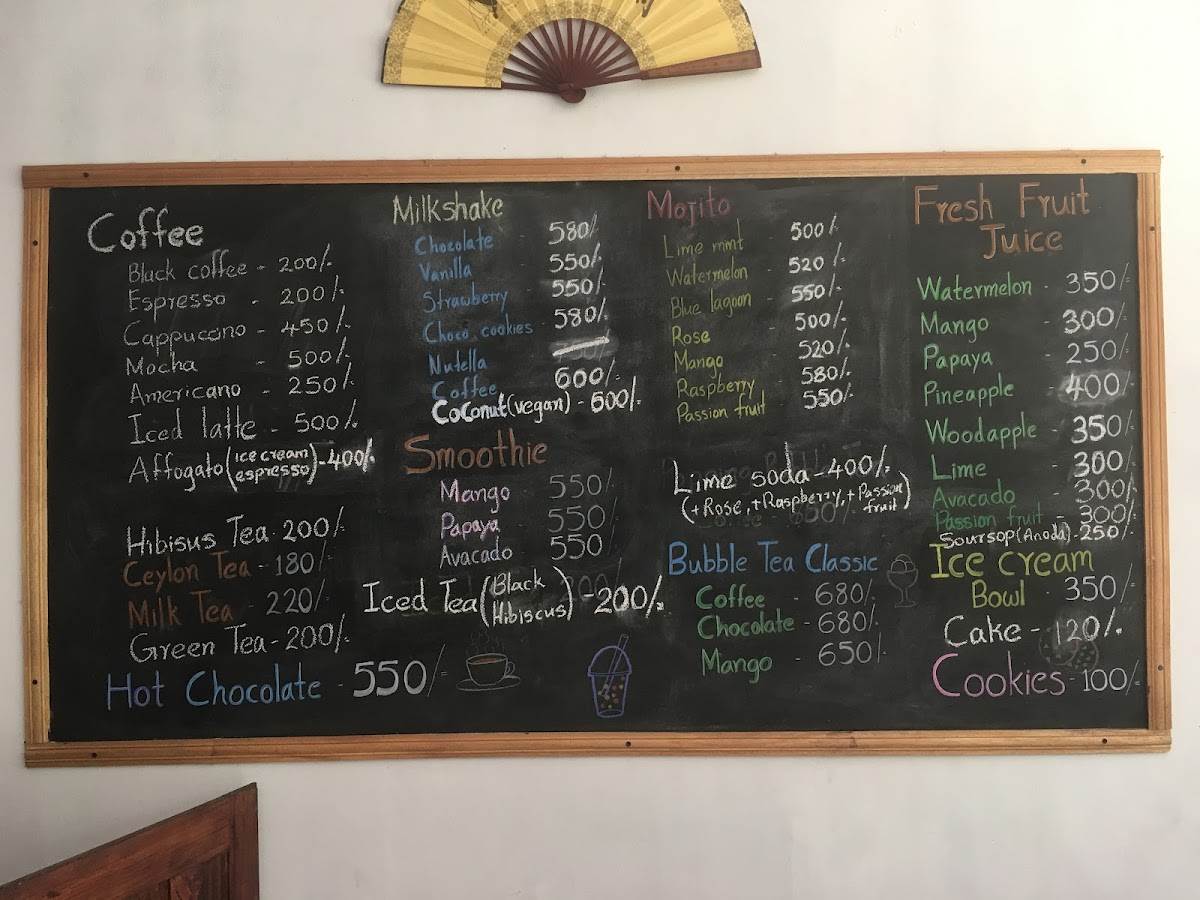 Coffee
Black coffee - 200/-
Espresso - 200/-
Cappuccano - 450/-
Mocha - 500/-
Americano - 250/-
Iced latte - 500/-
Affogato (ice cream espresso) - 400/-
Hibisus Tea - 200/-
Ceylon Tea - 180/-
Milk Tea - 220/-
Green Tea - 200/-
Hot Chocolate - 550/-
Milkshake
Chocolate 580/-
Vanilla - 550/-
Strawberry - 550/-
Choco cookies - 580/-
Nutella
Coffee 600/-
Coconut (vegan) - 600/-
Smoothie
Mango - 550/-
Papaya - 550/-
Avacado - 550/-
Iced Tea (Black Hibiscus) - 200/-
Mojito
Lime mint - 500/-
Watermelon - 520/-
Blue lagoon - 550/-
Rose - 500/-
Mango - 520/-
Raspberry - 580/-
Passion fruit - 550/-
Lime soda - 400/-
(+ Rose, + Raspberry, + Passion fruit)
Bubble Tea Classic
Coffee - 680/-
Chocolate - 680/-
Mango - 650/-
Fresh Fruit
Juice
Watermelon - 350/-
Mango - 300/-
Papaya - 250/-
Pineapple - 400/-
Woodapple - 350/-
Lime - 300/-
Avacado - 300/-
Passion fruit - 300/-
Soursop (Anoda) - 250/-
Ice cream
Bowl 350/-
Cake - 120/-
Cookies - 100/-